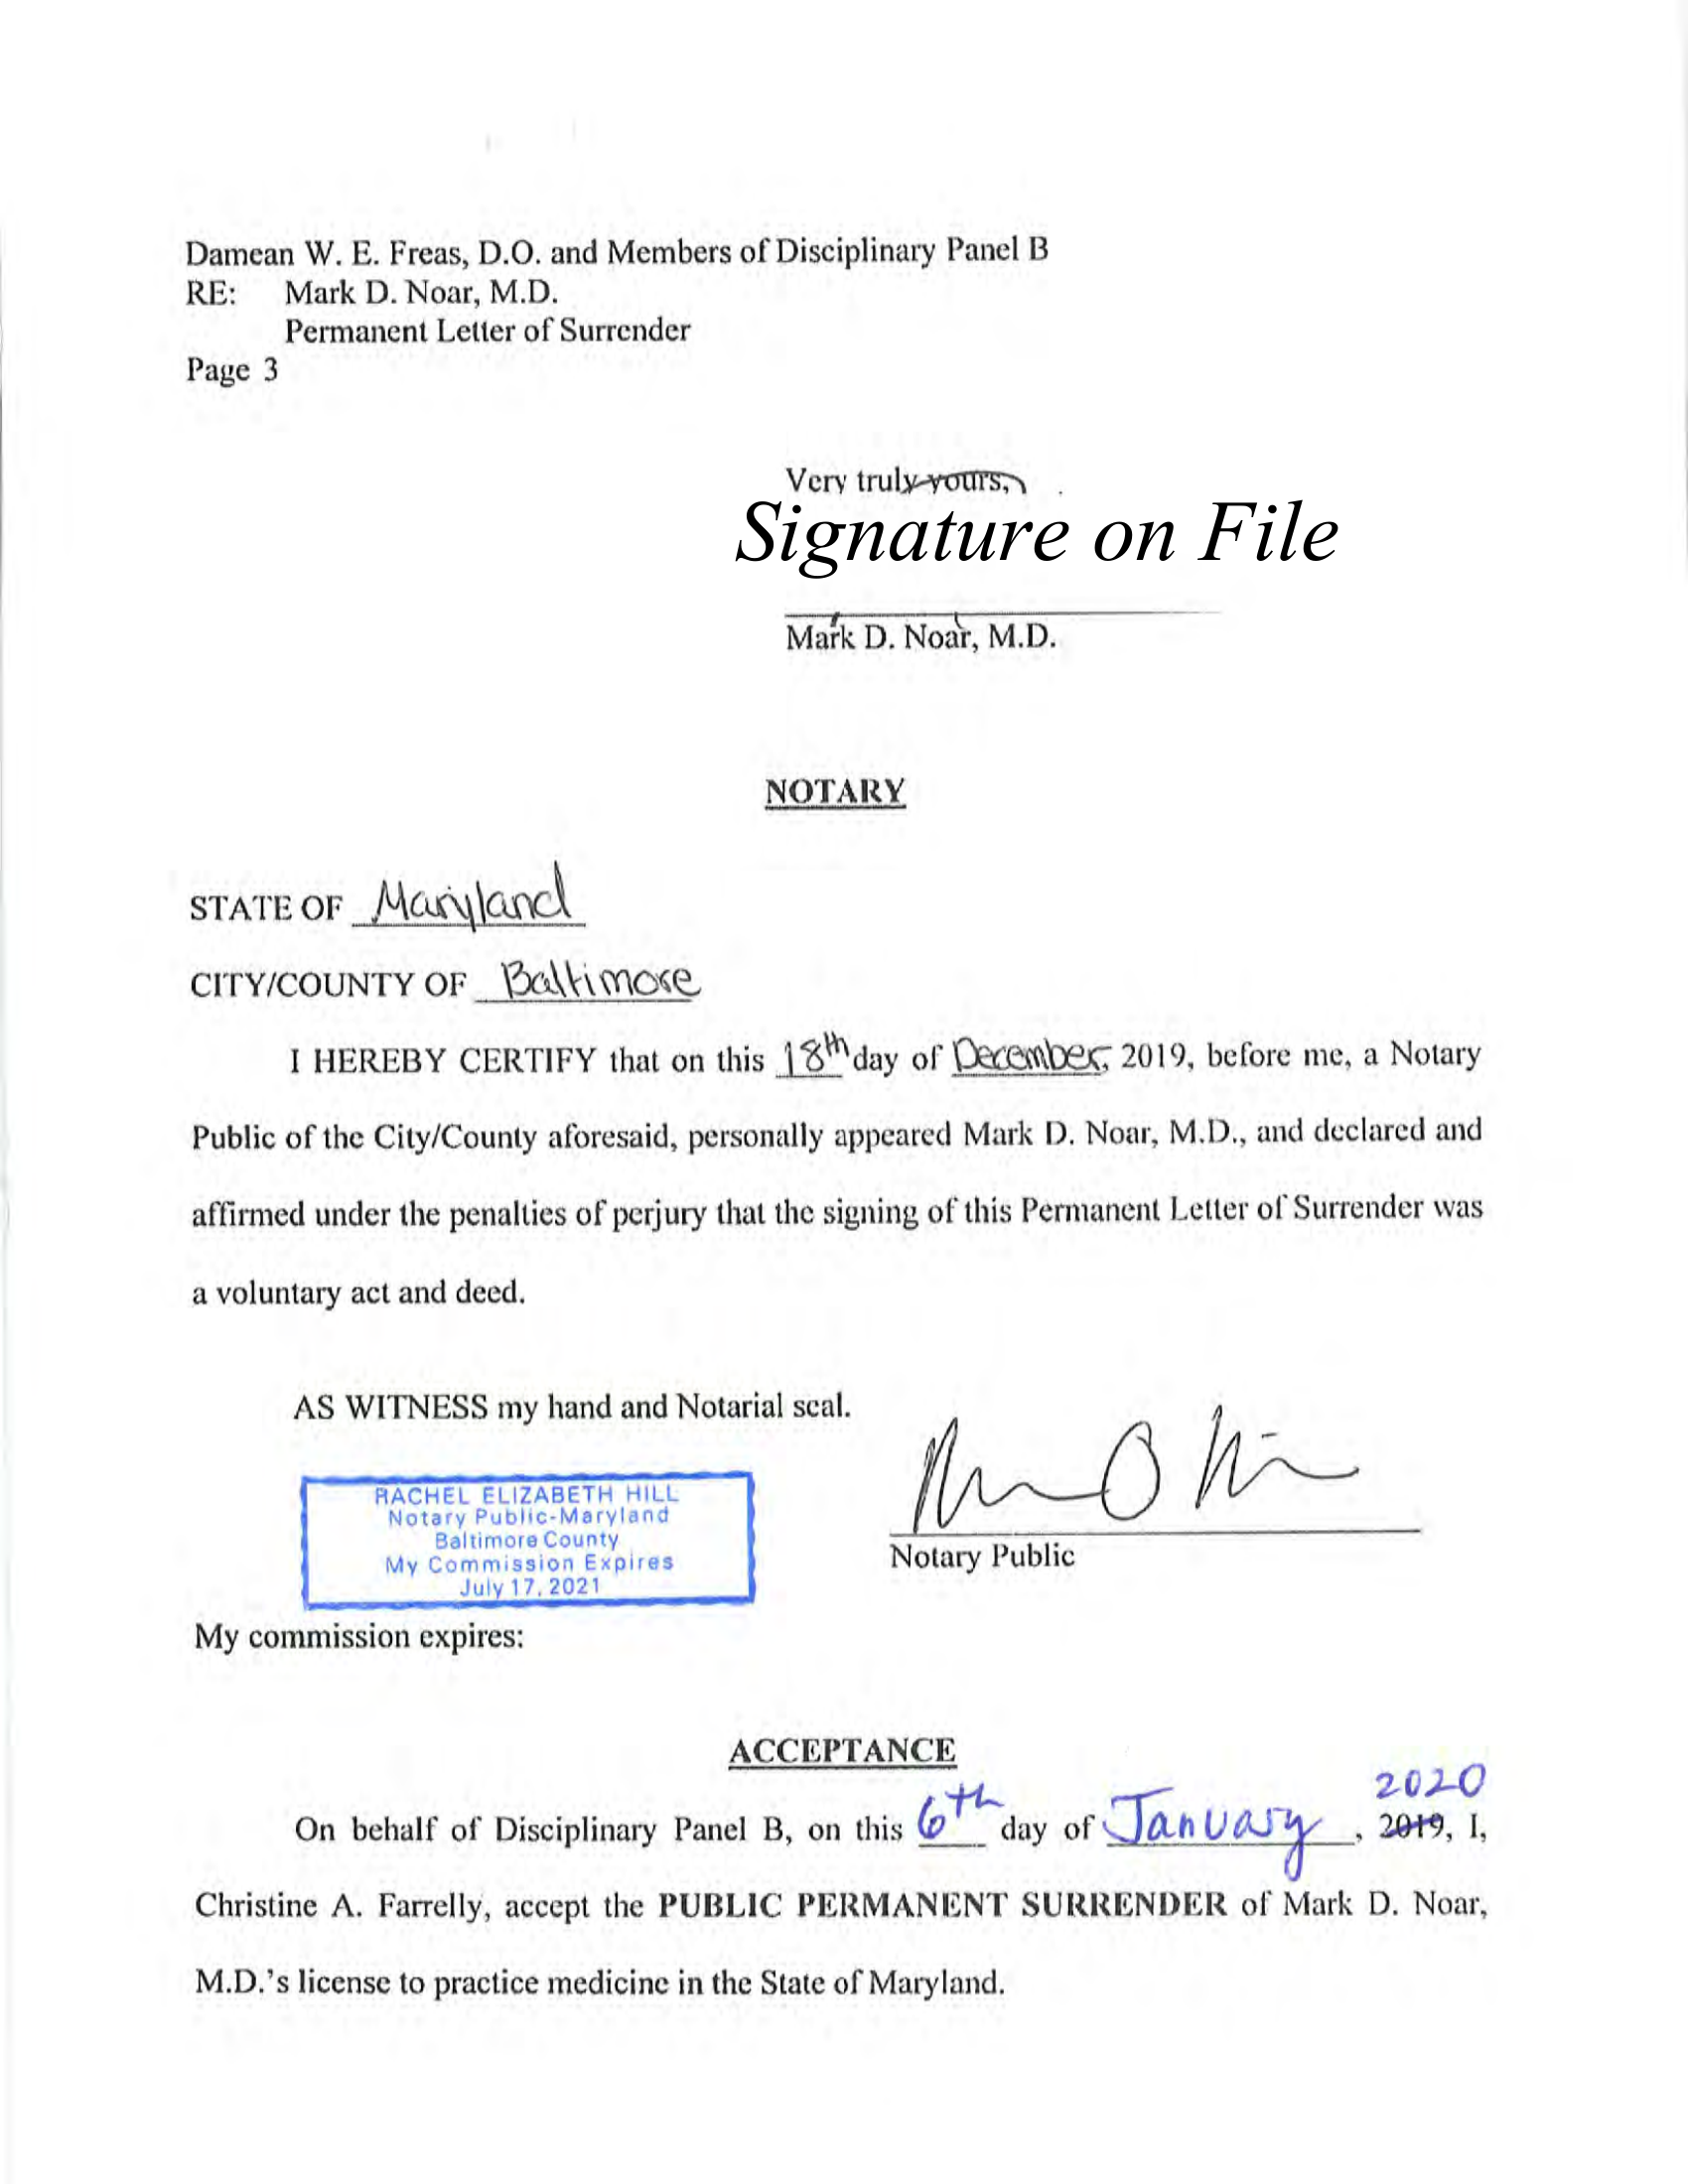 Damean W. E. Freas, D.O. and Members of Disciplinary Panel B
RE: Mark D. Noar, M.D.
Permanent Letter of Surrender
Page 3
Very truly yours,
Signature on File
Mark D. Noar, M.D.
NOTARY
STATE OF Maryland
CITY/COUNTY OF Baltimore
I HEREBY CERTIFY that on this 18th day of December, 2019, before me, a Notary
Public of the City/County aforesaid, personally appeared Mark D. Noar, M.D., and declared and
affirmed under the penalties of perjury that the signing of this Permanent Letter of Surrender was
a voluntary act and deed.
AS WITNESS my hand and Notarial seal.
RACHEL ELIZABETH HILL
Notary Public-Maryland
Baltimore County
My Commission Expires
July 17, 2021
Notary Public
My commission expires:
ACCEPTANCE
2020
On behalf of Disciplinary Panel B, on this 6th day of January, 2019, I,
Christine A. Farrelly, accept the PUBLIC PERMANENT SURRENDER of Mark D. Noar,
M.D.'s license to practice medicine in the State of Maryland.